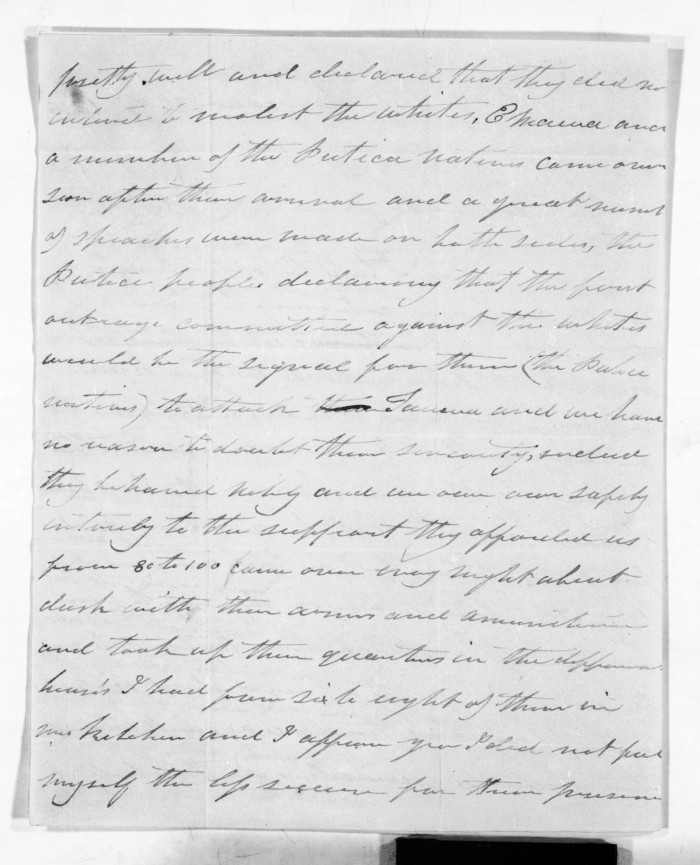 pretty well and declared that they did no
intend to molest the whites, E Maeva and
a number of the Putica nations came over
soon after their arrival and a great numb
of speaches were made on both sides, the
Putica people declaring that the first
outrage committed against the whites
would be the signal for them (the Palace
nations) to attack Taneva and we have
no reason to doubt their sincerity, indeed
they behaved nobly and we owe our safety
intirely to the support they afforded us
from 80 to 100 came over every night about
dusk with their arms and amunition
and took up their quarters in the differen
houses I had from six to eight of them in
my kitchen and I assure you I did not feel
myself the less secure for their presence